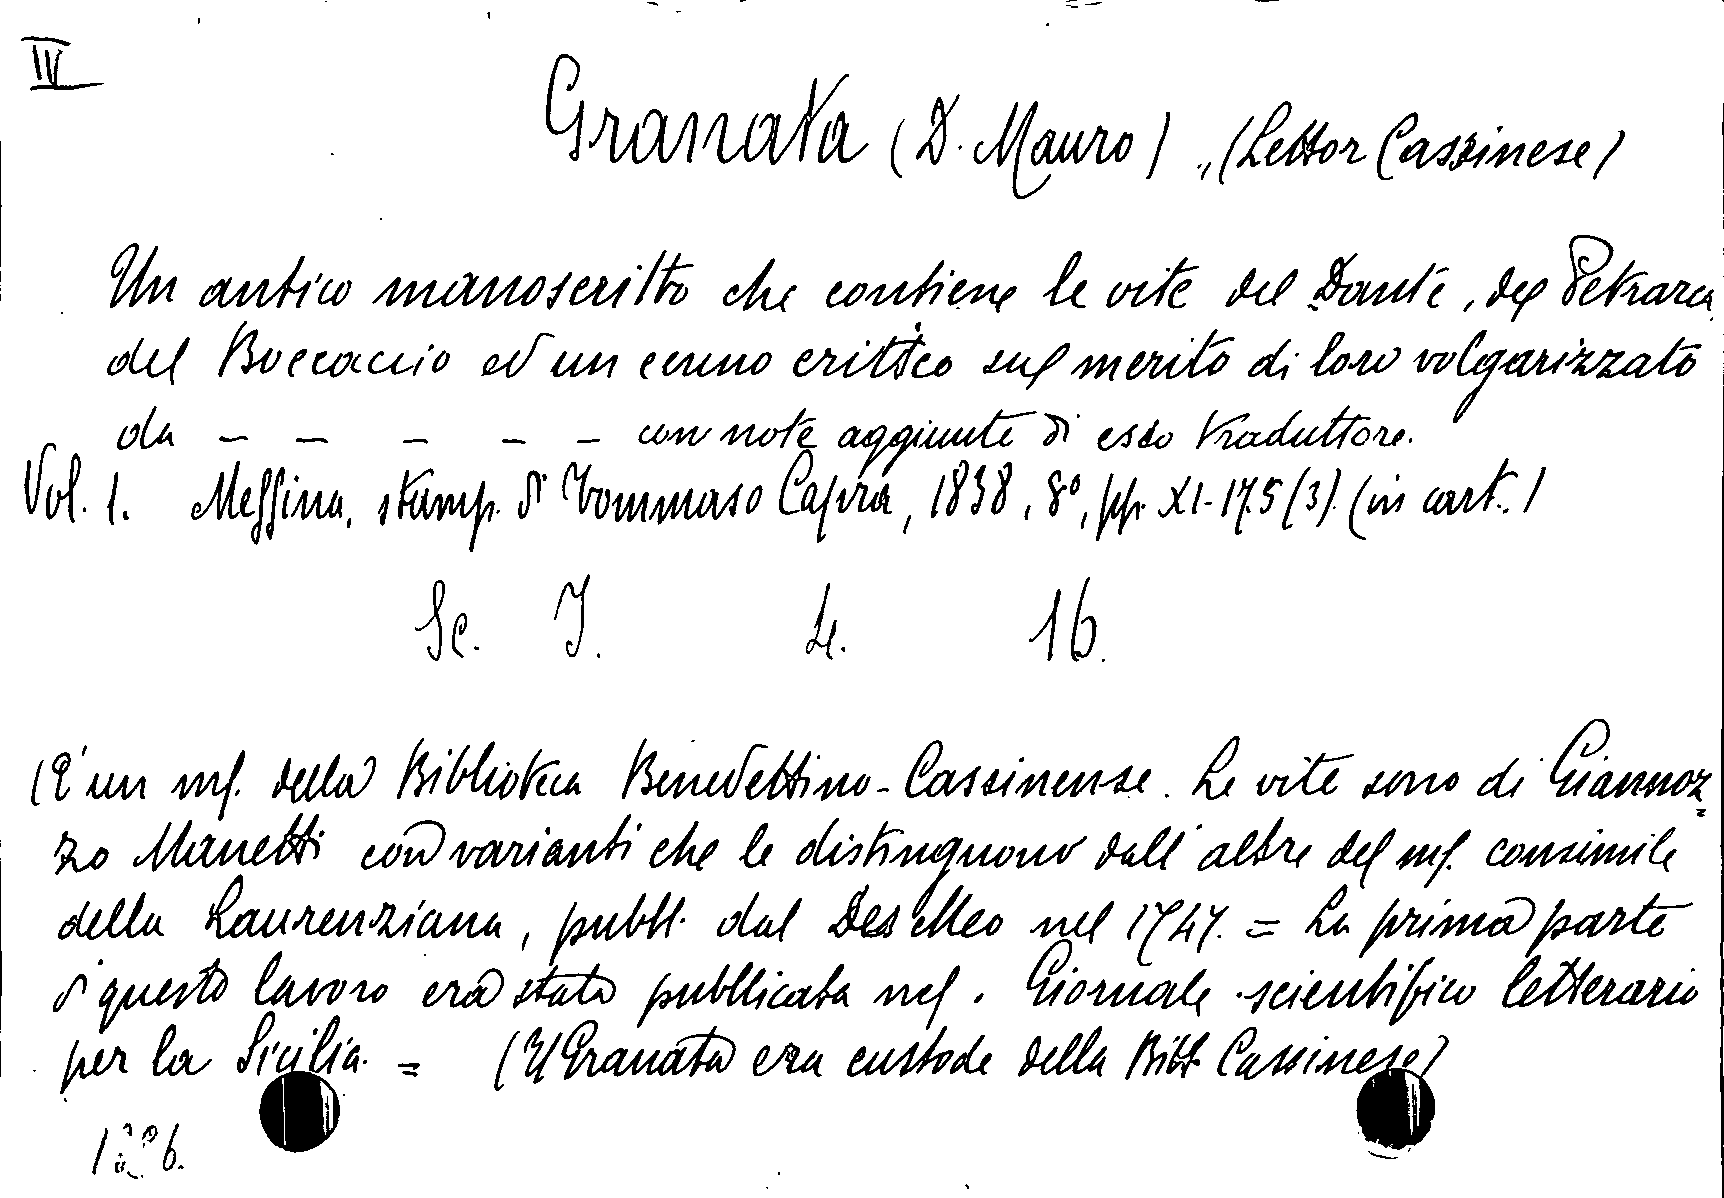 IV
Granata (D. Mauro) „(Lettor Cassinese)
Un antico manoscritto che contiene le vite del Dante, del Petrarca,
del Boccaccio ed un cenno critico sul merito di loro volgarizzato
da – – – – – con note aggiunte di esso traduttore.
Vol. 1. Messina, stamp. di Tommaso Capra, 1838, 8°, pp. XI-175 (3). (in cart.)
Sc. I. 4. 16.
(È un ms. della Biblioteca Benedettino-Cassinense. Le vite sono di Giannoz=
zo Manetti con varianti che le distinguono dall'altre del ms. consimile
della Laurenziana, pubbl. dal Des Meo nel 1747. = La prima parte
di questo lavoro era stata pubblicata nel. Giornale scientifico letterario
per la Sicilia. = (Il Granata era custode della Bibl. Cassinese)